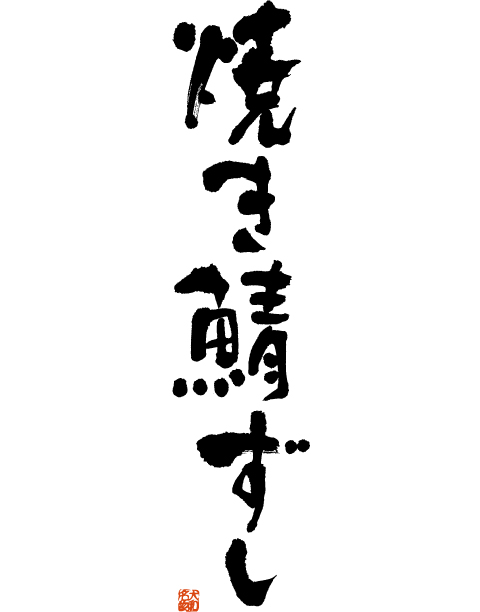 焼き鯖ずし